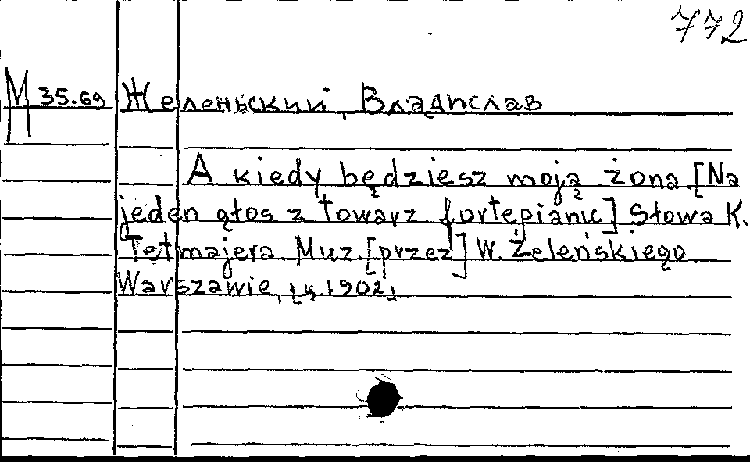 772
M 35.69 Желеньский, Владислав
A kiedy będziesz moją żoną. [Na
jeden głos z towarz fortepianu] Słowa K.
Tetmajera. Muz. [przez] W. Żeleńskiego
Warszawie, 1902.